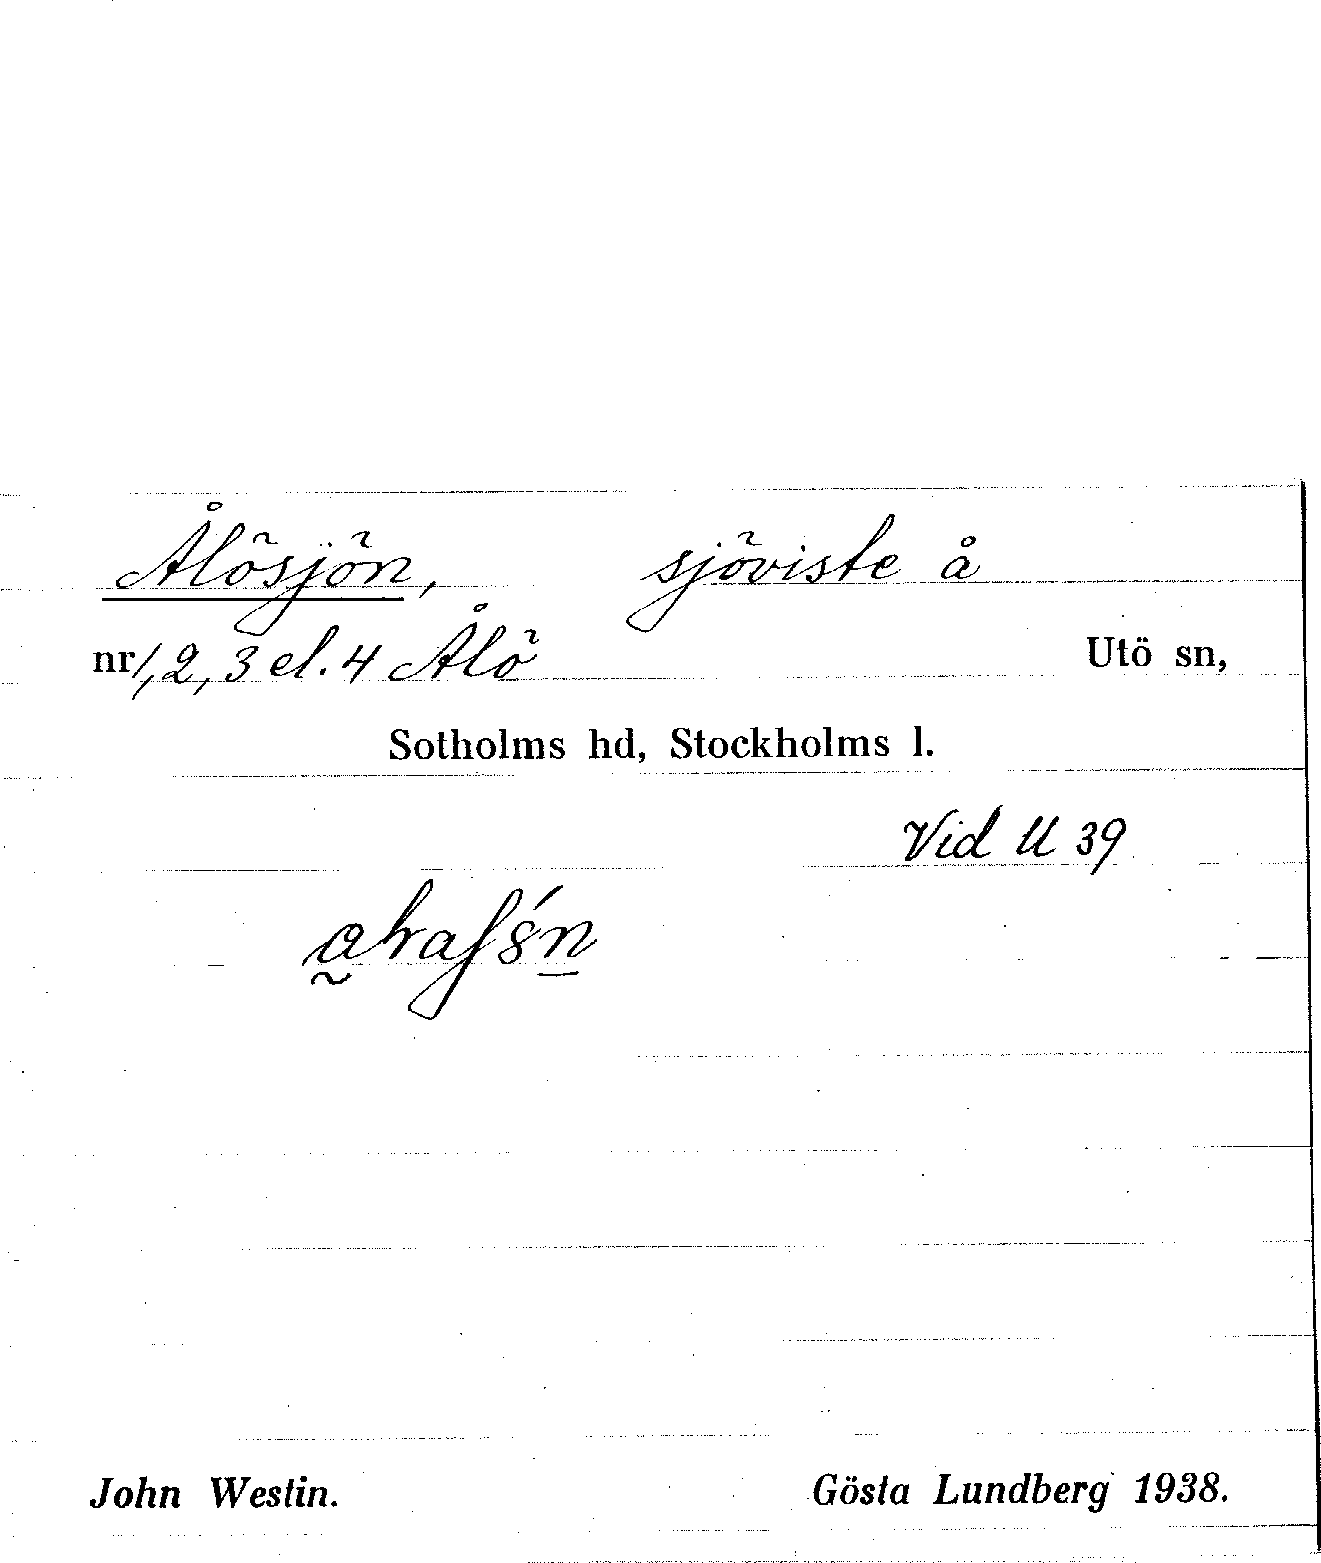 Ålösjön, sjöviste å
nr 1, 2, 3 el. 4 Ålö Utö sn,
Sotholms hd, Stockholms l.
Vid U 39
John Westin. Gösta Lundberg 1938.